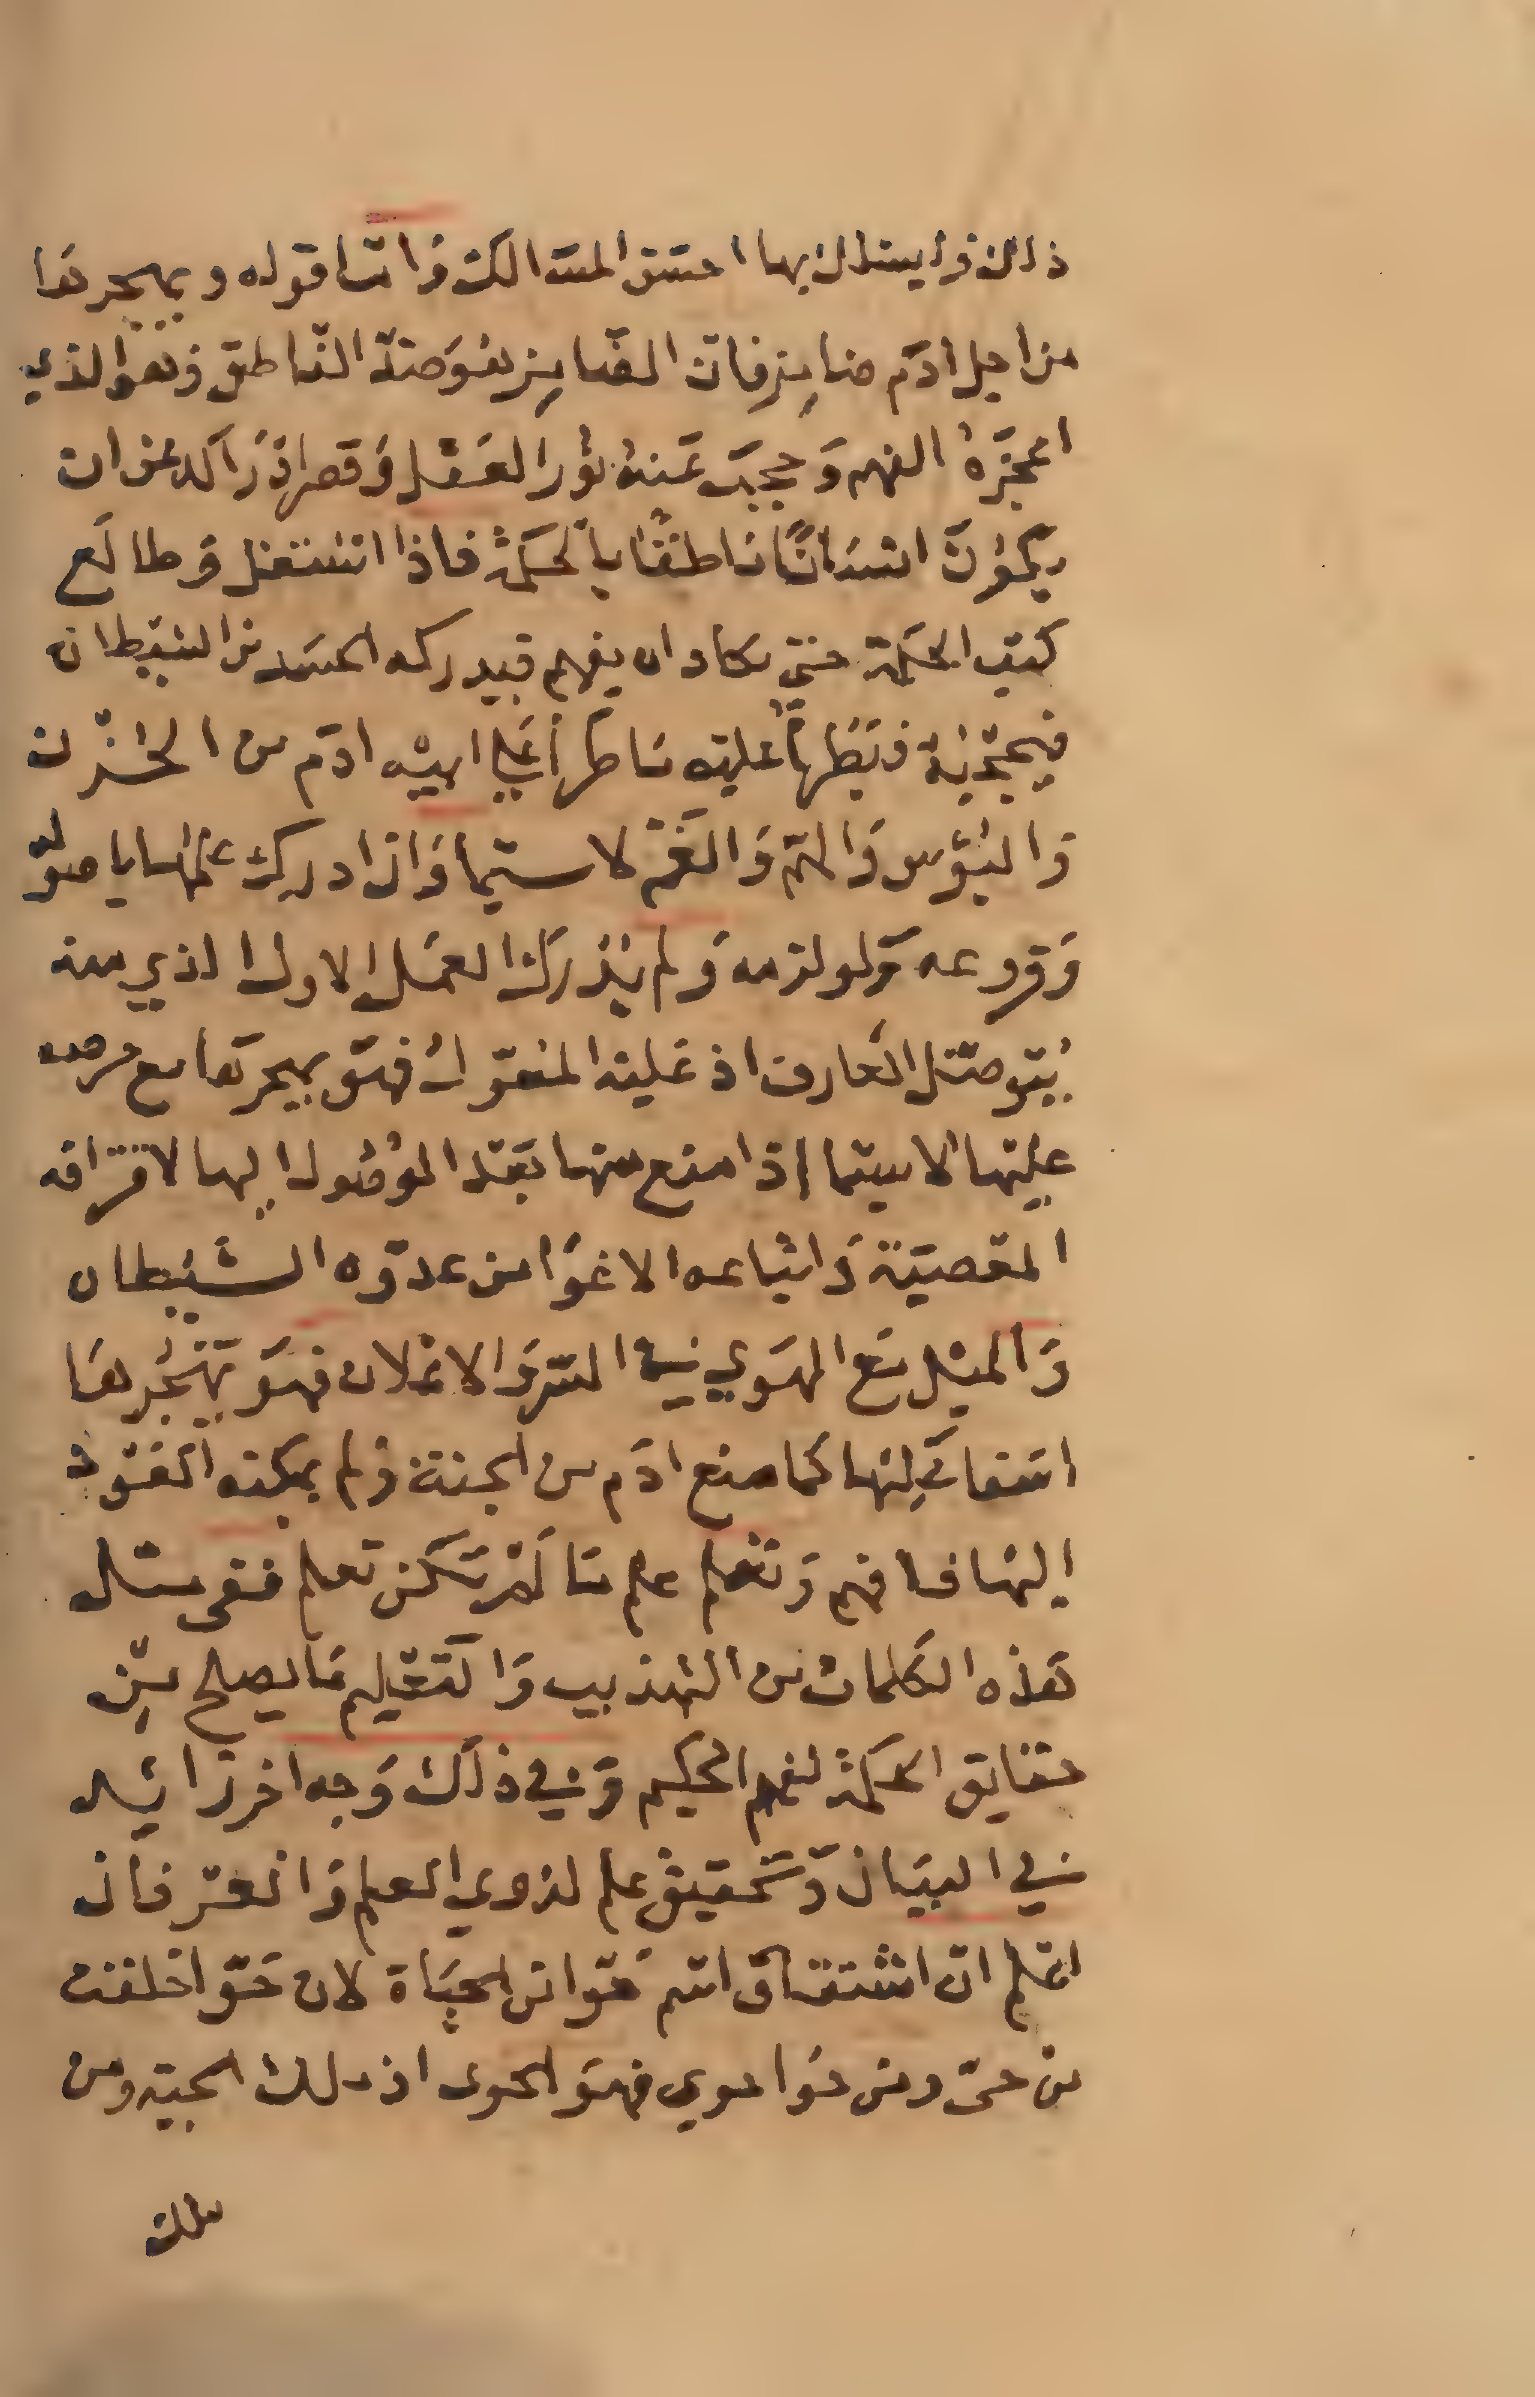 ذلك وايسلك بها احسن المسالك وَامّا قوله ويهجرهَا
من اجل ادَم ضابِرفان الصّابِر هُوَ ضدّ النّاطق وَهو الذي
اعجَزهُ الفهم وَحجبَ عَنهُ نوُر العَقل وَقصر اذرَاكه عن ان
يكوُنَ انسَانًا ناطقًا بالحكمة فاذا اشتغل وَطالَع
كتب الحكمَة حتى يكاد ان يفهم فيدركه الحسَد من الشيطان
فيحجبهُ وَيَظهر عليه مَا ظهر عَلي ابيه ادَم من الحُزن
وَالبؤس وَالهمّ وَالغَمّ لا سيّما وَان ادرك علمها باصُوله
وَفروعه وَلوازمه وَلم يُدرك العمَل الاول الذي منه
يُتوصّل العَارف اذ عَليه المعَوّل فهوَ يهجرهَا مع حرصه
عليهَا لاسيّما اذا منع منها بَعد الوُصُول اليها لاقترافه
المعَصيَة وَاتباعه الاغوَا من عدوّه الشيطان
وَالميل مَع الهوَي في السّر وَالاعلان فهوَ يَهجُرهَا
اسَفا عَليهَا كَما منع ادَم من الجنة وَلم يمكنه العَوْد
اليهَا فافهم وَتعلم علم مَا لَمْ تَكن تعلم ففي مثل
هَذه الكلمات من التهذيب وَالتعَليم مَا يصلح مِن
حقايق الحكمَة لفهم الحكيم وَفي ذلَك وَجه اخر زَائد
في البيَان وَتَحقيق علم لذوي العلم وَالعرفان
اعَلم انّ اشتقاق اسَم حَوّا من الحيَاة لان حَوّا خلقت
من حيّ ومن حَوا حوي فهوَ الحوى اذ لك الحيّه ومن